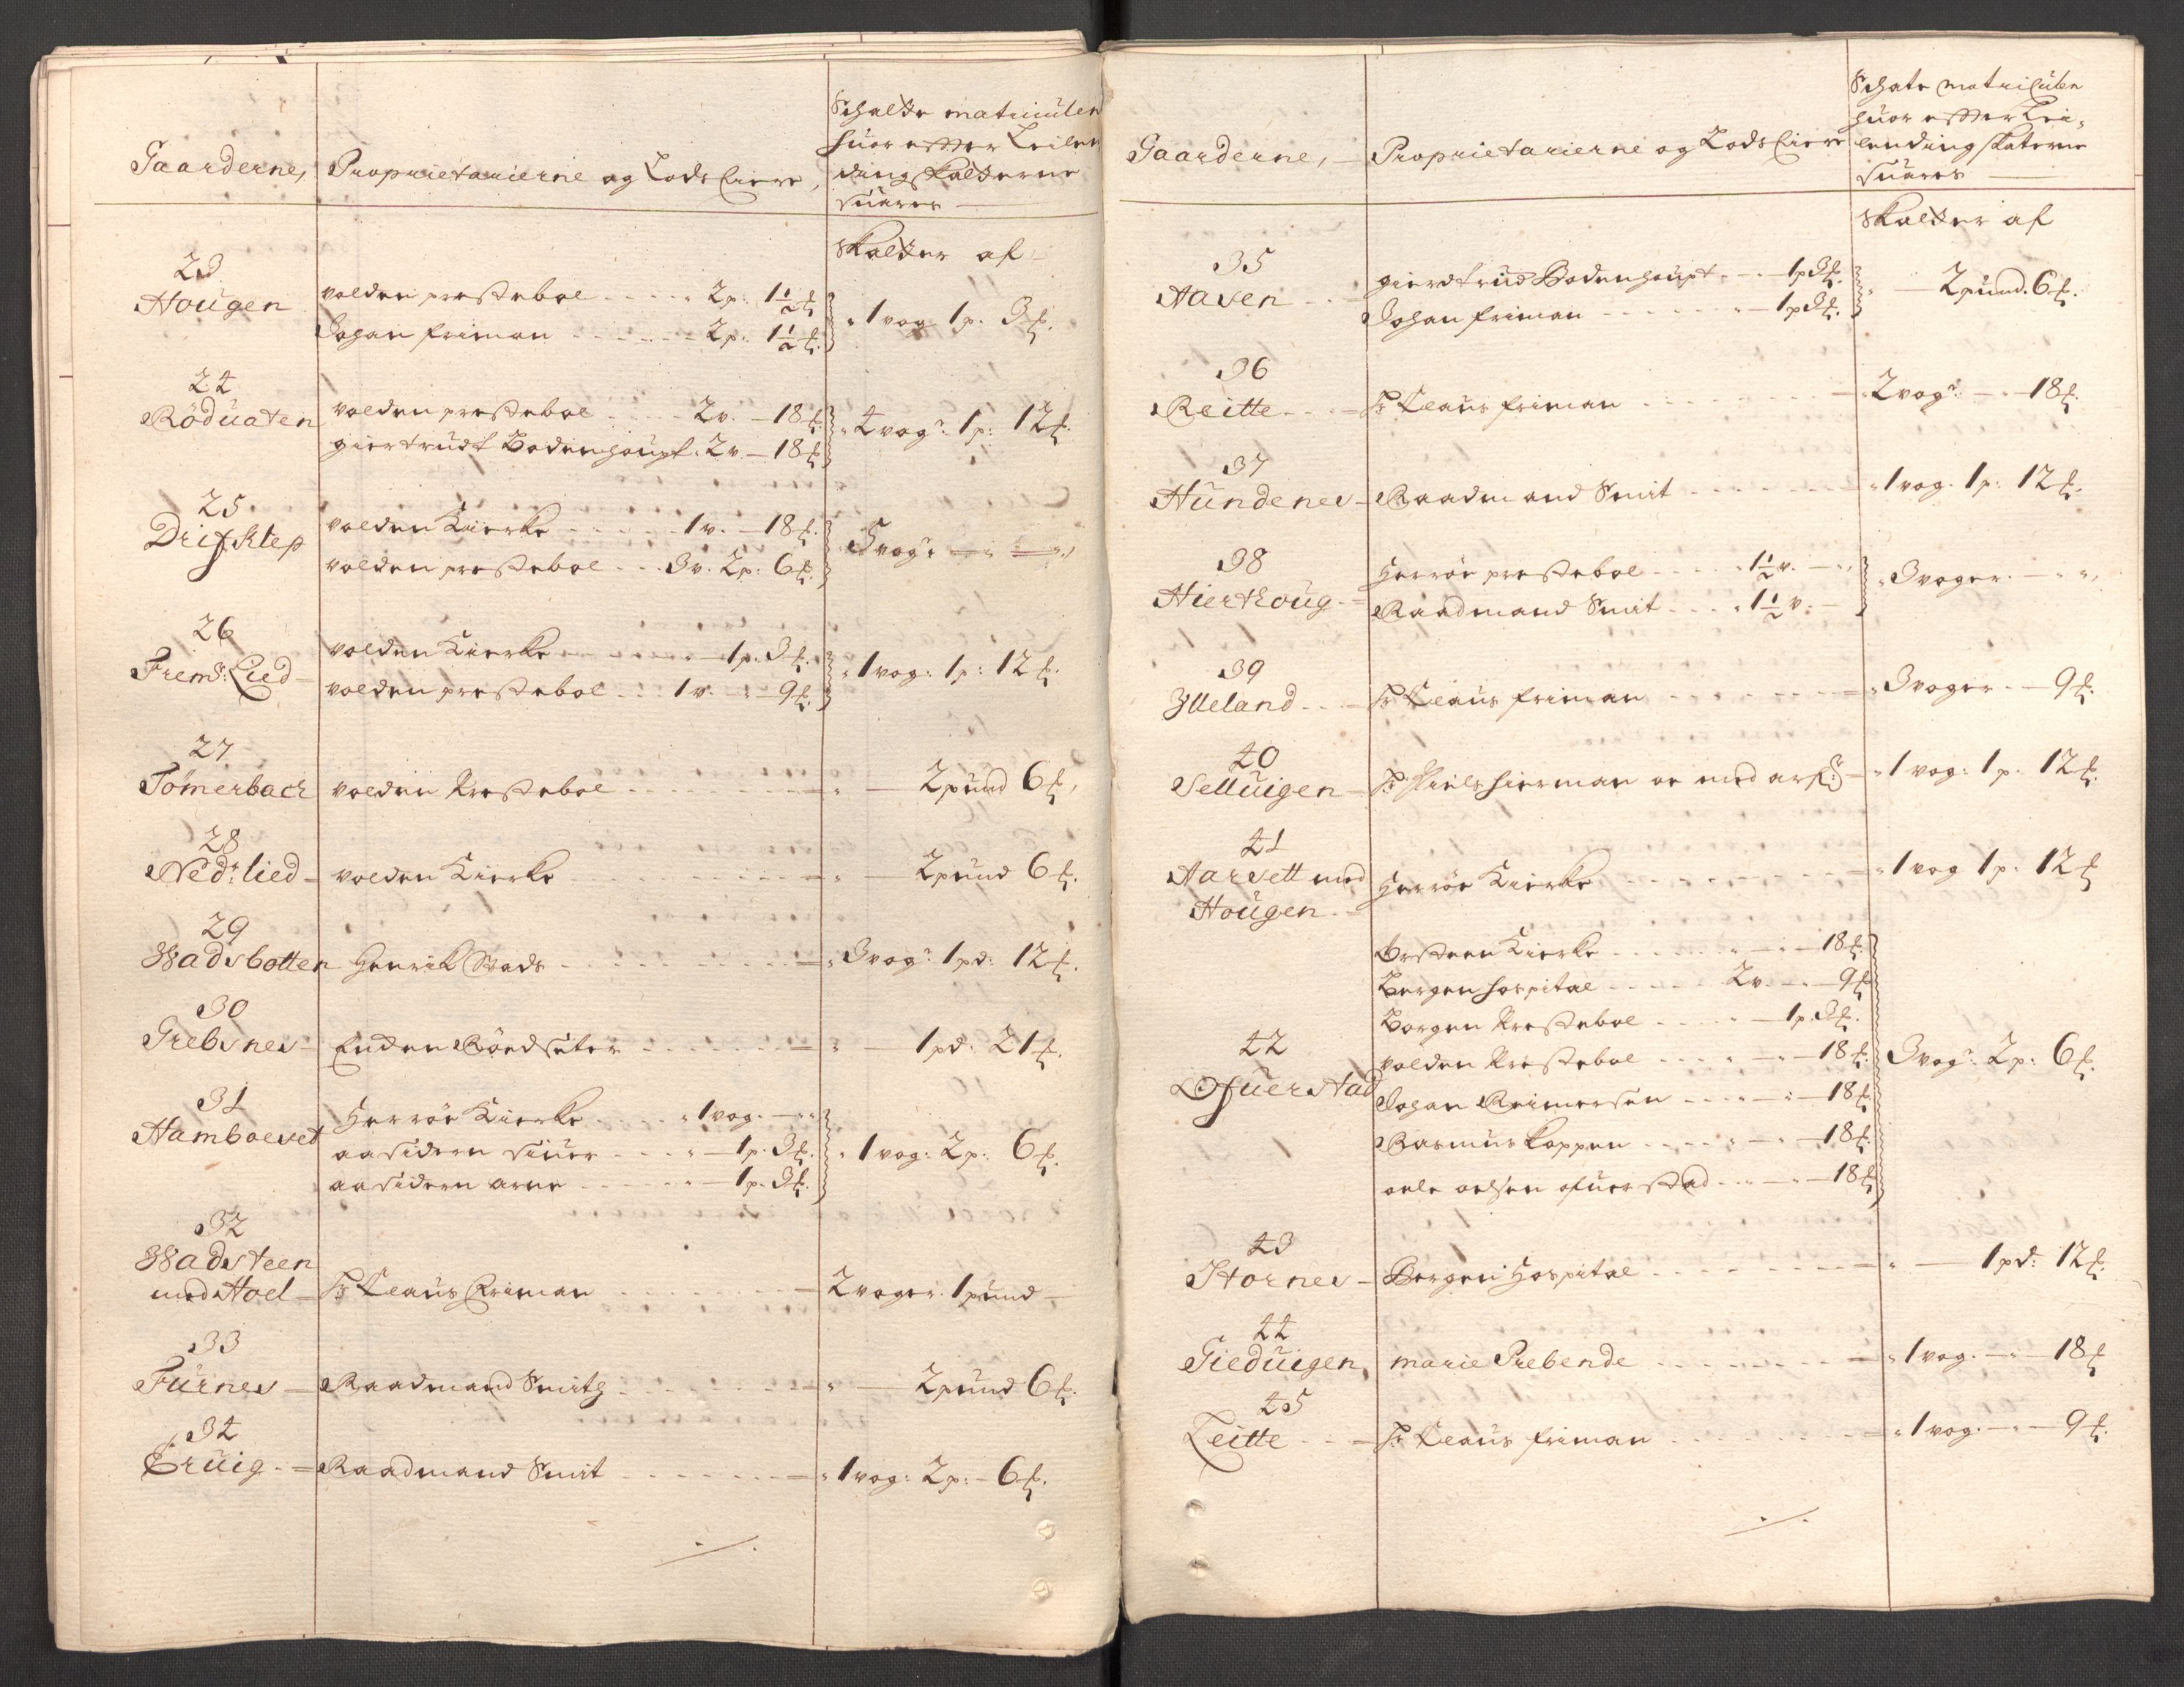 Gaarderne, Proprietarierne og Lods Eiere, Schatte matriculen
huor effter Leilen
dings skatterne
suares
Skatter af
23
Hougen
volden prestebol 2 p: 1½ ℔
Johan friman 2 p: 1½ ℔. 1 vog 1 p. 3 ℔.
24
Röduaten
volden prestebol 2 v. 18 ℔.
giertrudt Bodenhoupt 2 v. 18 ℔. 4 vogr: 1 p: 12 ℔.
25
Drifklep
volden Kierke 1 v. 18 ℔.
volden prestebol 3 v. 2 p: 6 ℔. 5 vogr:
26
Frem: Lied
volden Kierke 1 p. 3 ℔.
volden prestebol 1 v. 9 ℔. 1 vog: 1 p: 12 ℔.
27
Tömerbach volden Prestebol 2 pund 6 ℔,
28
Nedr: lied volden Kierke 2 pund 6 ℔.
29
Wadsbotten Henrik Stads 3 vogr: 1 pd: 12 ℔.
30
Grebsnes 1 pd: 21 ℔.
31
Hamboeset
Herröe Kierke 1 vog.
aasidern siuer 1 p. 3 ℔.
aasidern arne 1 p. 3 ℔. 1 vog: 2 p: 6 ℔.
32
Wadsteen
med Hoel Hr: Claus Friman 2 voger. 1 pund
33
Furnes Raadmand Smith 2 pund 6 ℔.
34
Eruig Raadmand Smit 1 vog: 2 p: 6 ℔.
Gaarderne, Proprietarierne og Lods Eiere Schatte matriculen
huor effter Lei-
lendings skaterne
suares
Skatter af
35
Aasen
gierdtrud Bodenhoupt 1 p 3 ℔.
Johan friman 1 p 3 ℔. 2 pund. 6 ℔.
36
Reitte Hr: Claus friman 2 vogr: 18 ℔.
37
Hundenes Raadmand Smit 1 vog. 1 p: 12 ℔.
38
Hierthoug
Herröe prestebol 1½ v.
Raadmand Smit 1½ v. 3 voger.
39
Jlleland Hr: Claus friman 3 voger. 9 ℔.
40
Selluigen Hr: Niels hierman oc med arf: 1 vog: 1 p. 12 ℔.
41
Aarsett med
Hougen Herröe Kierke 1 vog 1 p: 12 ℔
42
Ofuerstad
Ørsteen Kierke 18 ℔.
Bergen hospital 2 v. 9 ℔
Borgen Prestebol 1 p. 3 ℔.
volden Prestebol 18 ℔.
Johan Reimersen 18 ℔.
Rasmus koppen 18 ℔.
oele oelsen ofuerstad 18 ℔. 3 vogr: 2 p: 6 ℔.
43
Stornes Bergen Hospital 1 pd: 12 ℔.
44
Gieduigen, marie Prebende 1 vog. 18 ℔
45
Leitte Hr: Claus friman 1 vog. 9 ℔.